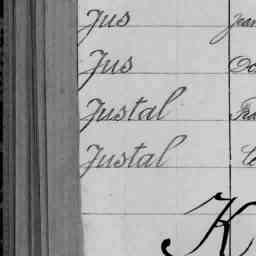 Jus
Jus
Justal
Justal
K